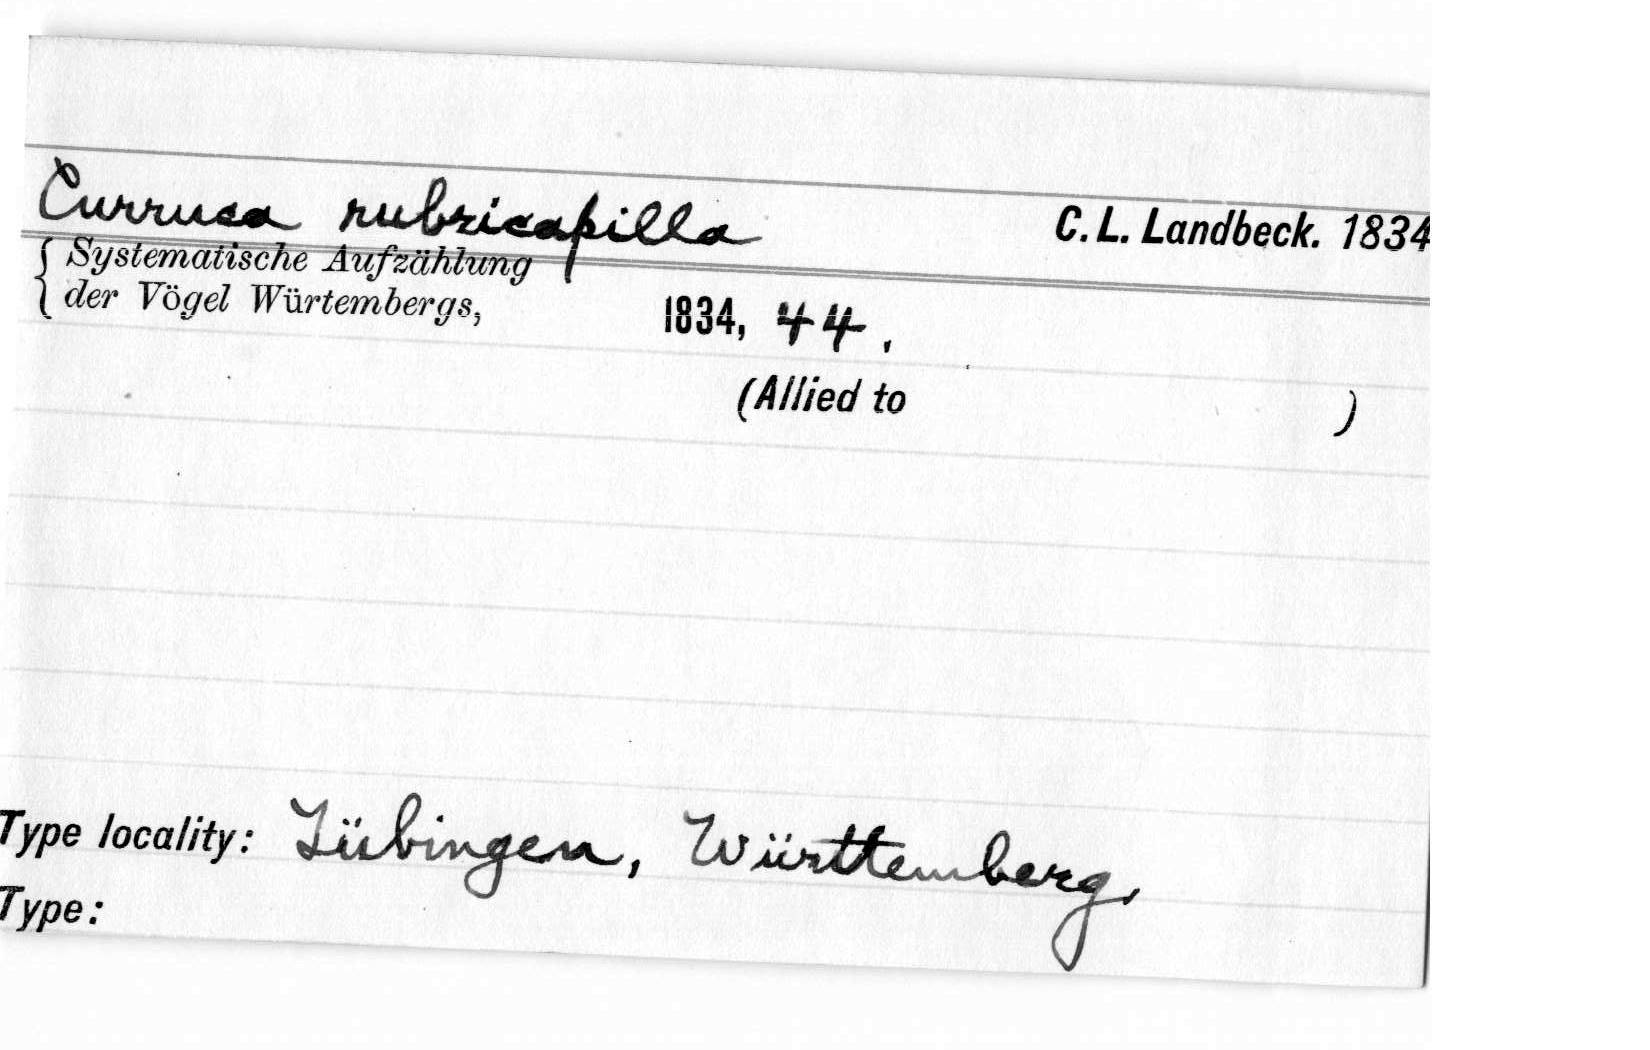 Curruca rubricapilla C. L. Landbeck. 1834
{ Systematische Aufzählung
{ der Vögel Würtembergs, 1834, 44.
(Allied to )
Type locality: Tübingen, Württemberg,
Type: